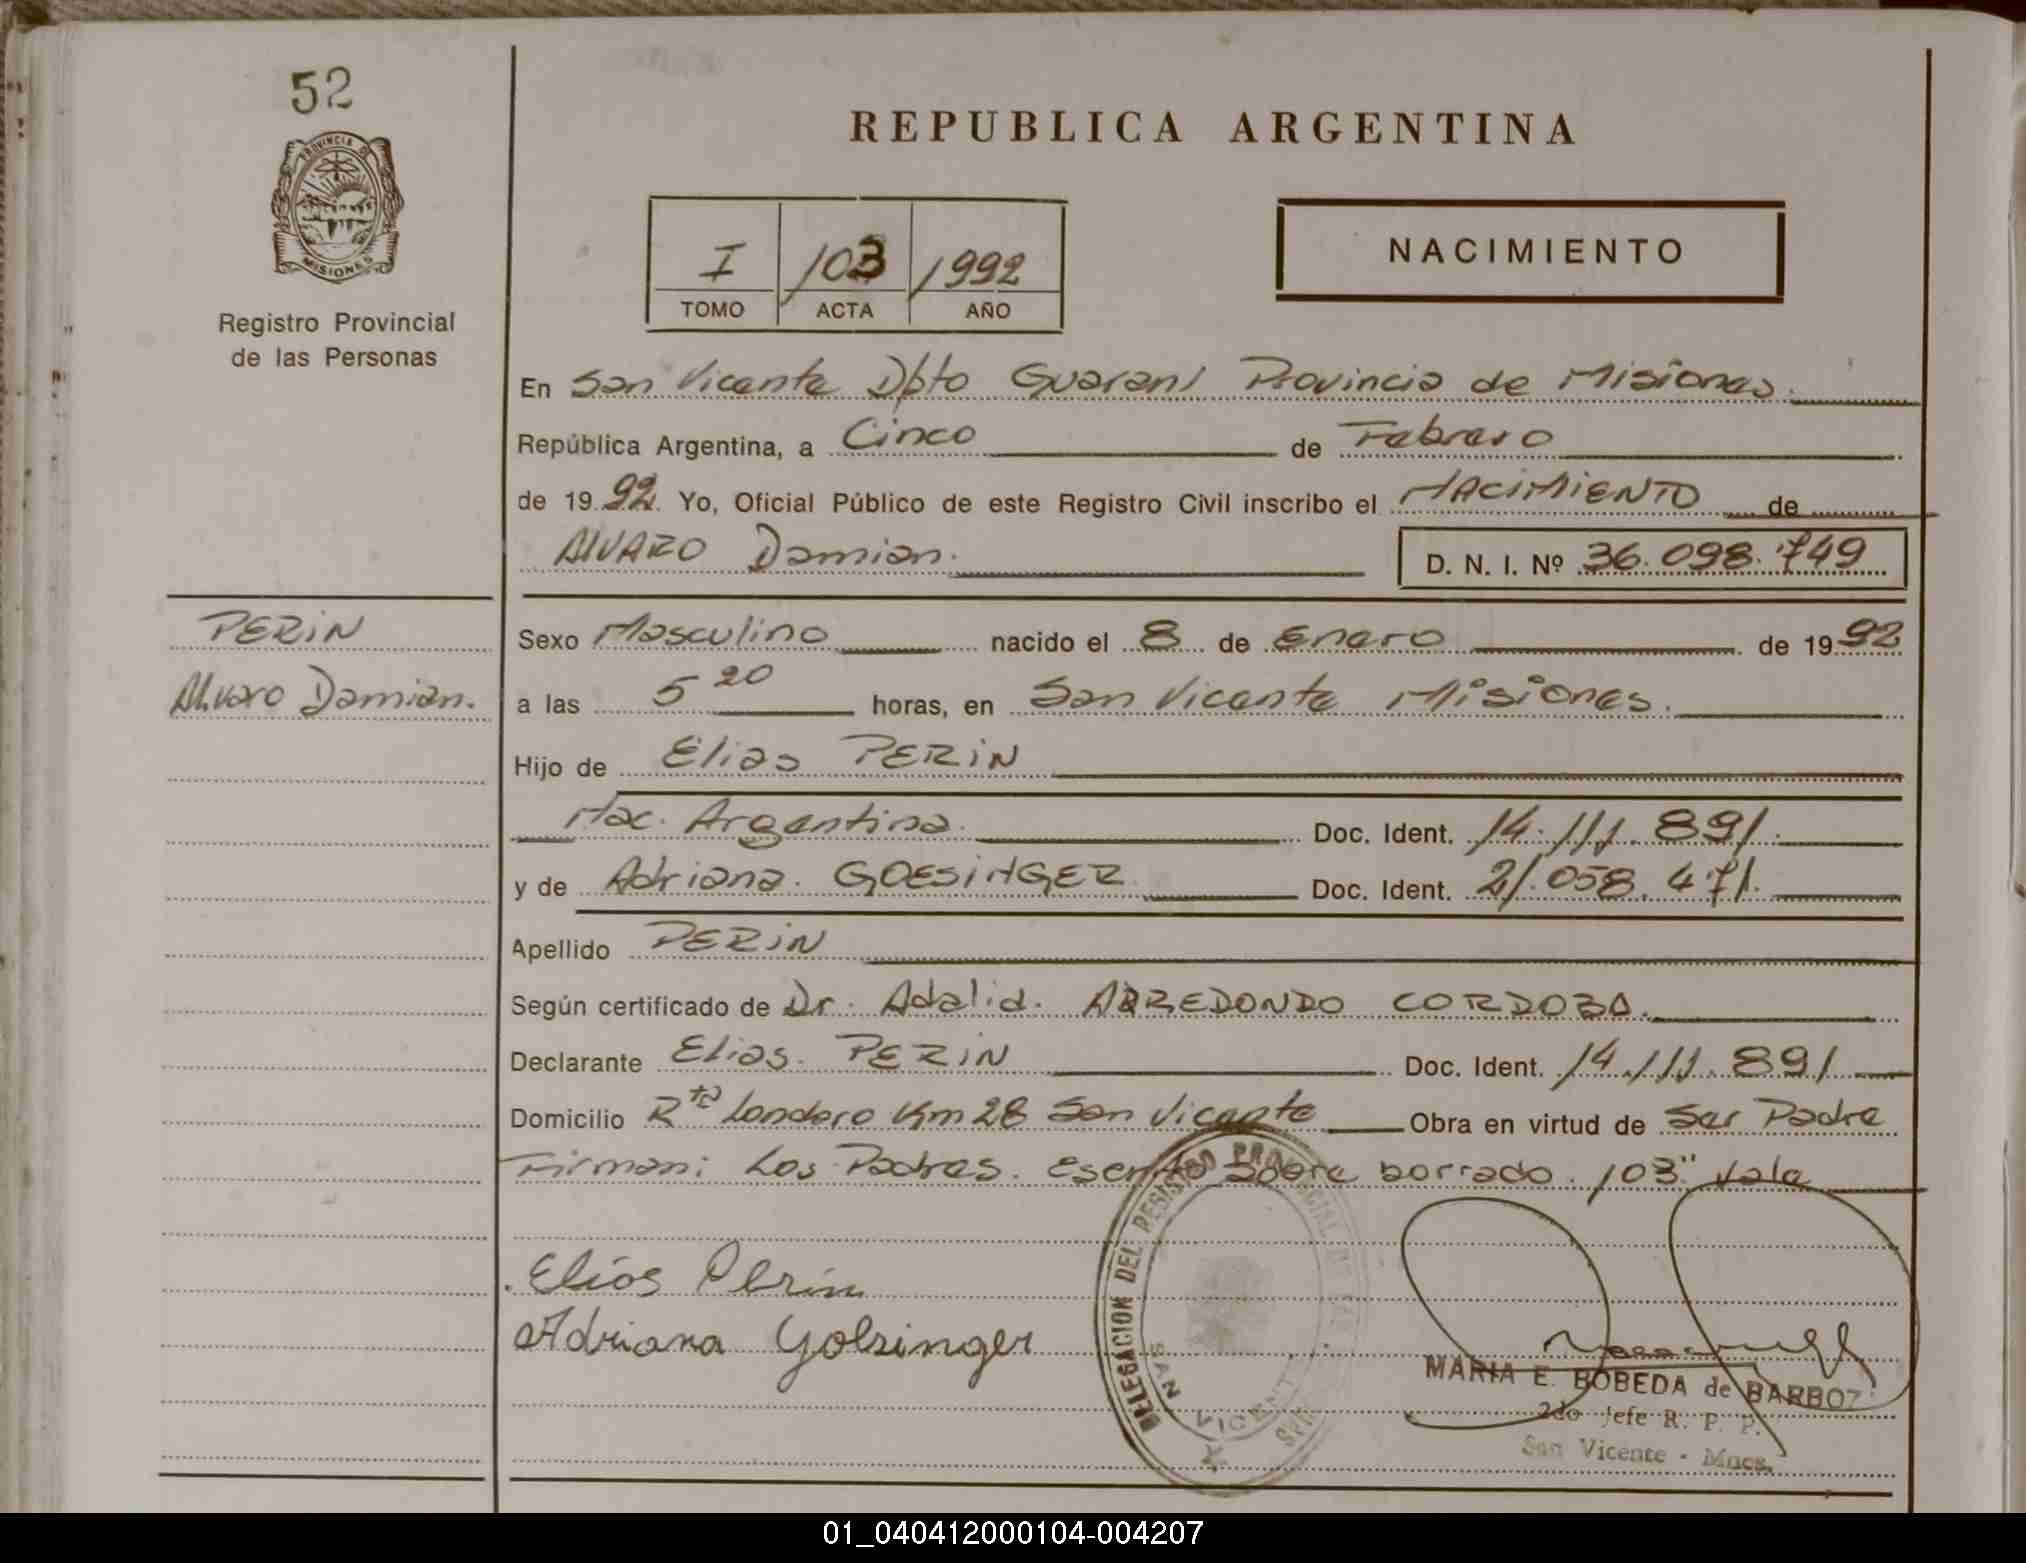 52
PROVINCIA DE
MISIONES
Registro Provincial
de las Personas
REPUBLICA ARGENTINA
I 103 1992
TOMO ACTA AÑO
NACIMIENTO
En San Vicente Dpto Guarani Provincia de Misiones.
República Argentina, a Cinco de Febrero
de 1992. Yo, Oficial Público de este Registro Civil inscribo el NACIMIENTO de
ALVARO Damian. D. N. I. Nº 36.098.749
PERIN
Alvaro Damian.
Sexo Masculino nacido el 8 de Enero de 1992
a las 5 20 horas, en San Vicente Misiones.
Hijo de Elias PERIN
Nac. Argentina. Doc. Ident. 14.111.891.
y de Adriana. GOESINGER Doc. Ident. 21.058.471.
Apellido PERIN
Según certificado de Dr. Adalid. ARREDONDO CORDOBA.
Declarante Elias. PERIN Doc. Ident. 14.111.891
Domicilio Rto Londero Km 28 San Vicente Obra en virtud de Ser Padre
Firman: Los Padres. Escrito Sobre borrado. 103" Vale
Elios Perin
Adriana Golsinger
DELEGACION DEL REGISTRO PROVINCIAL DE LAS
SAN VICENTE
MARIA E. BOBEDA de BARBOZ
2do Jefe R. P. P.
San Vicente - Mnes.
01_040412000104-004207